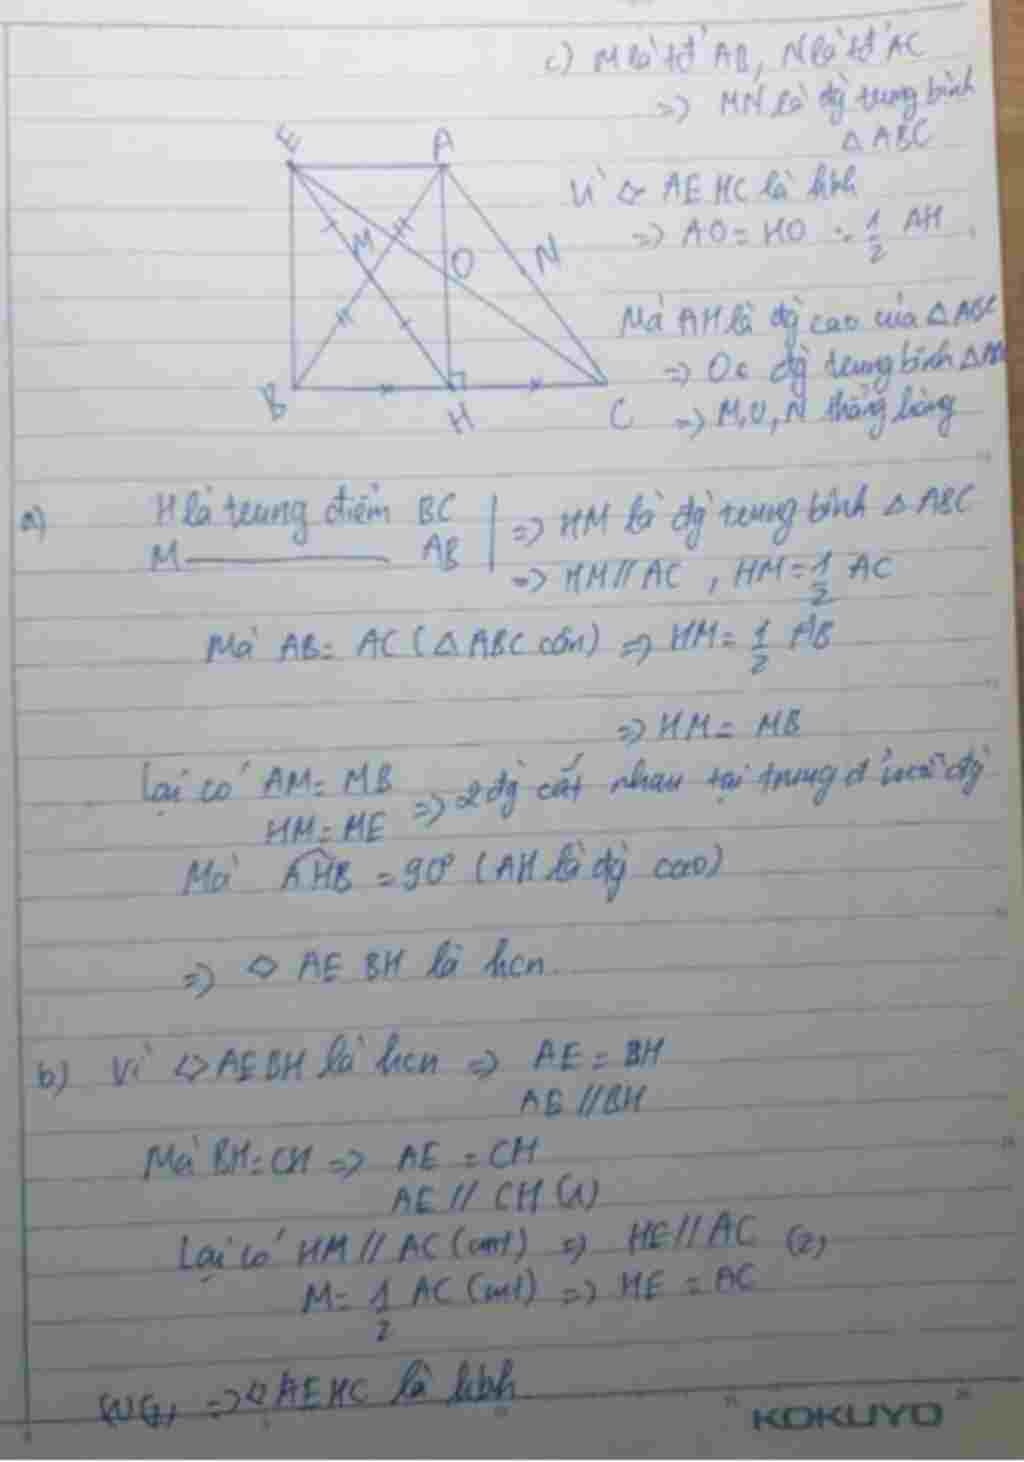 c) M là tđ' AB, N là tđ' AC
=> MN là đg trung bình
△ ABC
Vì ◇ AEHC là hbh
=> AO = HO = 1/2 AH
Mà AH là đg cao của △ ABC
=> O ∈ đg trung bình
=> M, O, N thẳng hàng
E
A
M
O
N
B
H
C
a) H là trung điểm BC
M ——— AB
=> HM là đg trung bình △ ABC
=> HM // AC , HM = 1/2 AC
Mà AB = AC ( △ ABC cân ) => HM = 1/2 AB
=> HM = MB
Lại có AM = MB
HM = ME
=> 2 đg cắt nhau tại trung đ' mỗi đg
Mà AHB = 90° (AH là đg cao)
=> ◇ AE BH là hcn
b) Vì ◇ AEBH là hcn => AE = BH
AE // BH
Mà BH = CH => AE = CH
AE // CH (1)
Lại có HM // AC (cmt) => HE // AC (2)
M = 1/2 AC (cmt) => HE = AC
=> ◇ AEHC là hbh
KOKUYO